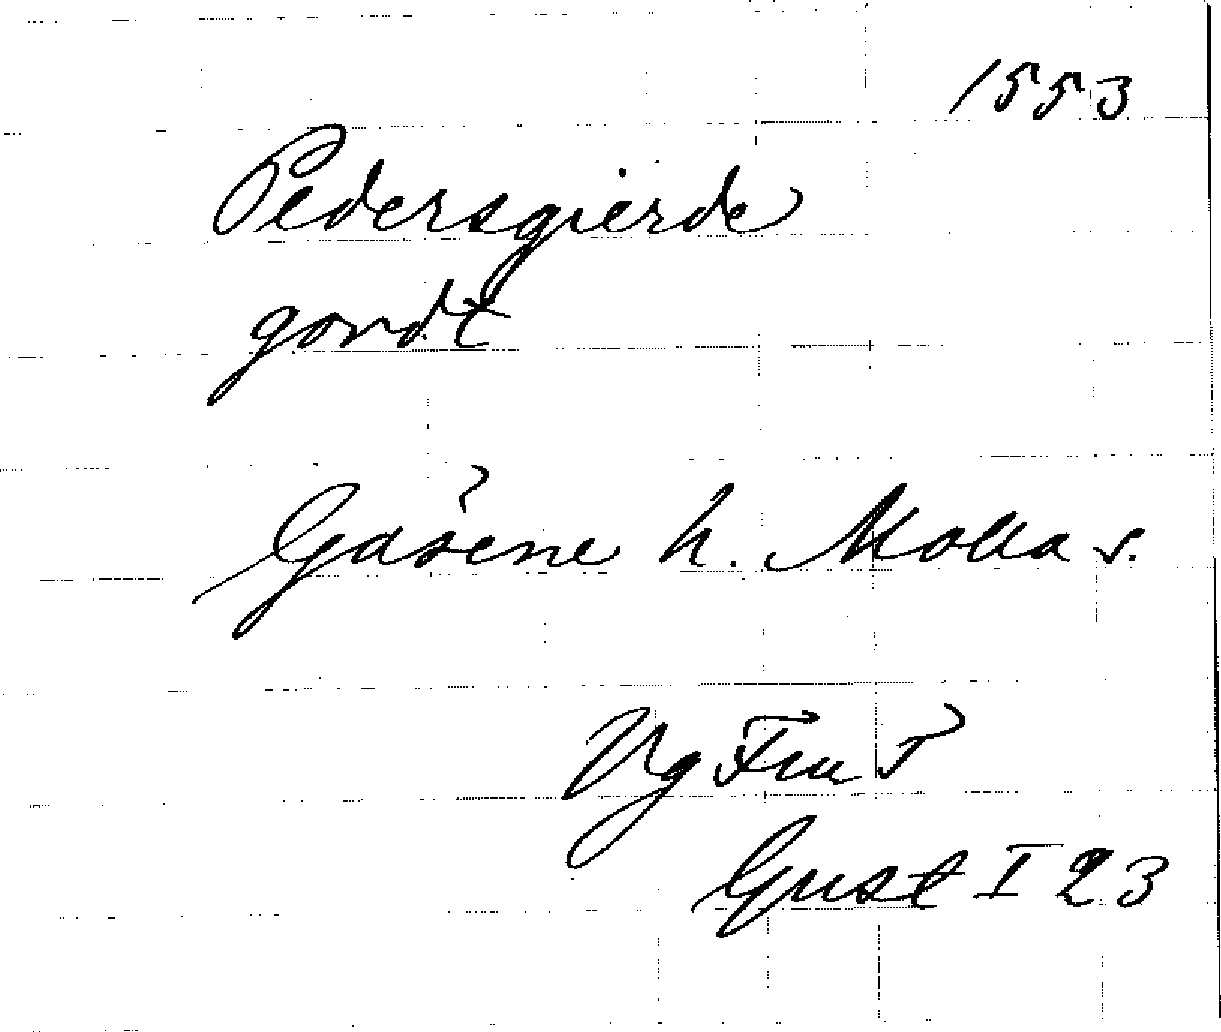 1553
Pedersgierde
gordt
Gåsene h. Molla s.
Vg Fru T
Gust I 23